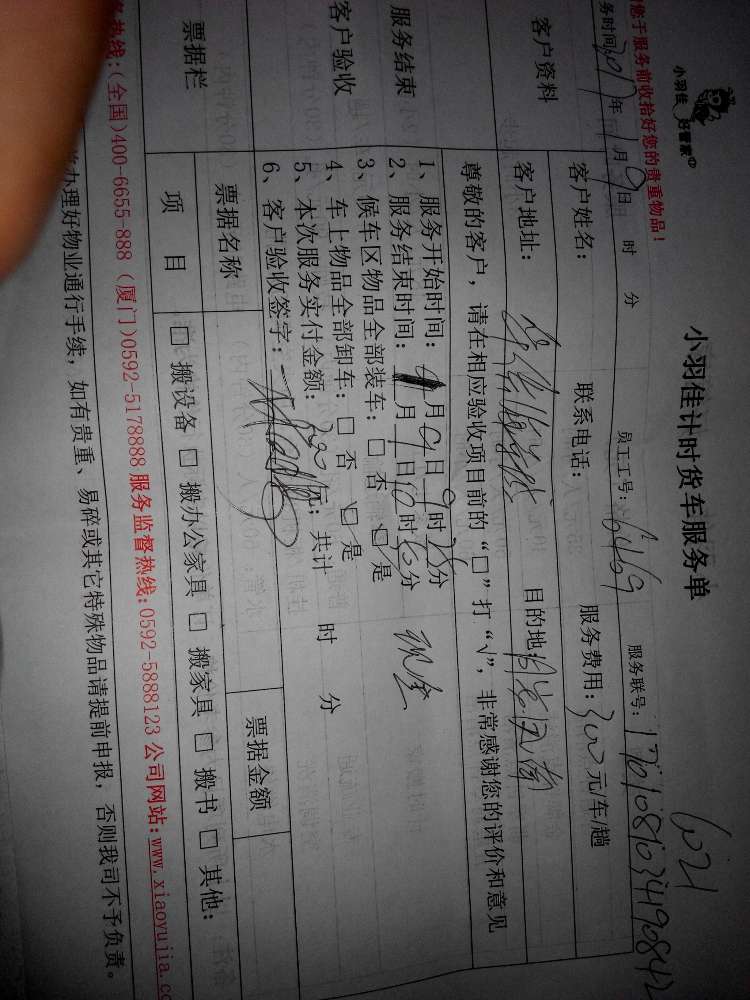 小羽佳 好管家
小羽佳计时货车服务单
6021
您于服务前收拾好您的贵重物品！
务时间：2017年1月9日 时 分 员工工号：6469 服务联号：
客户资料
客户姓名： 联系电话： 服务费用：300元/车/趟
客户地址： 目的地：
尊敬的客户，请在相应验收项目前的“□”打“√”，非常感谢您的评价和意见
服务结束
客户验收
1、服务开始时间： 月9日9时 分
2、服务结束时间： 月9日10时 分 现金
3、候车区物品全部装车：□ 否 ☑ 是
4、车上物品全部卸车：□ 否 ☑ 是
5、本次服务实付金额：300元；共计 时 分
6、客户验收签字：
票据栏
票据名称 票据金额
项 目 □ 搬设备 □ 搬办公家具 □ 搬家具 □ 搬书 □ 其他：
热线：(全国)400-6655-888 (厦门)0592-5178888 服务监督热线：0592-5888123 公司网站：www.xiaoyujia.co
办理好物业通行手续，如有贵重、易碎或其它特殊物品请提前申报，否则我司不予负责。